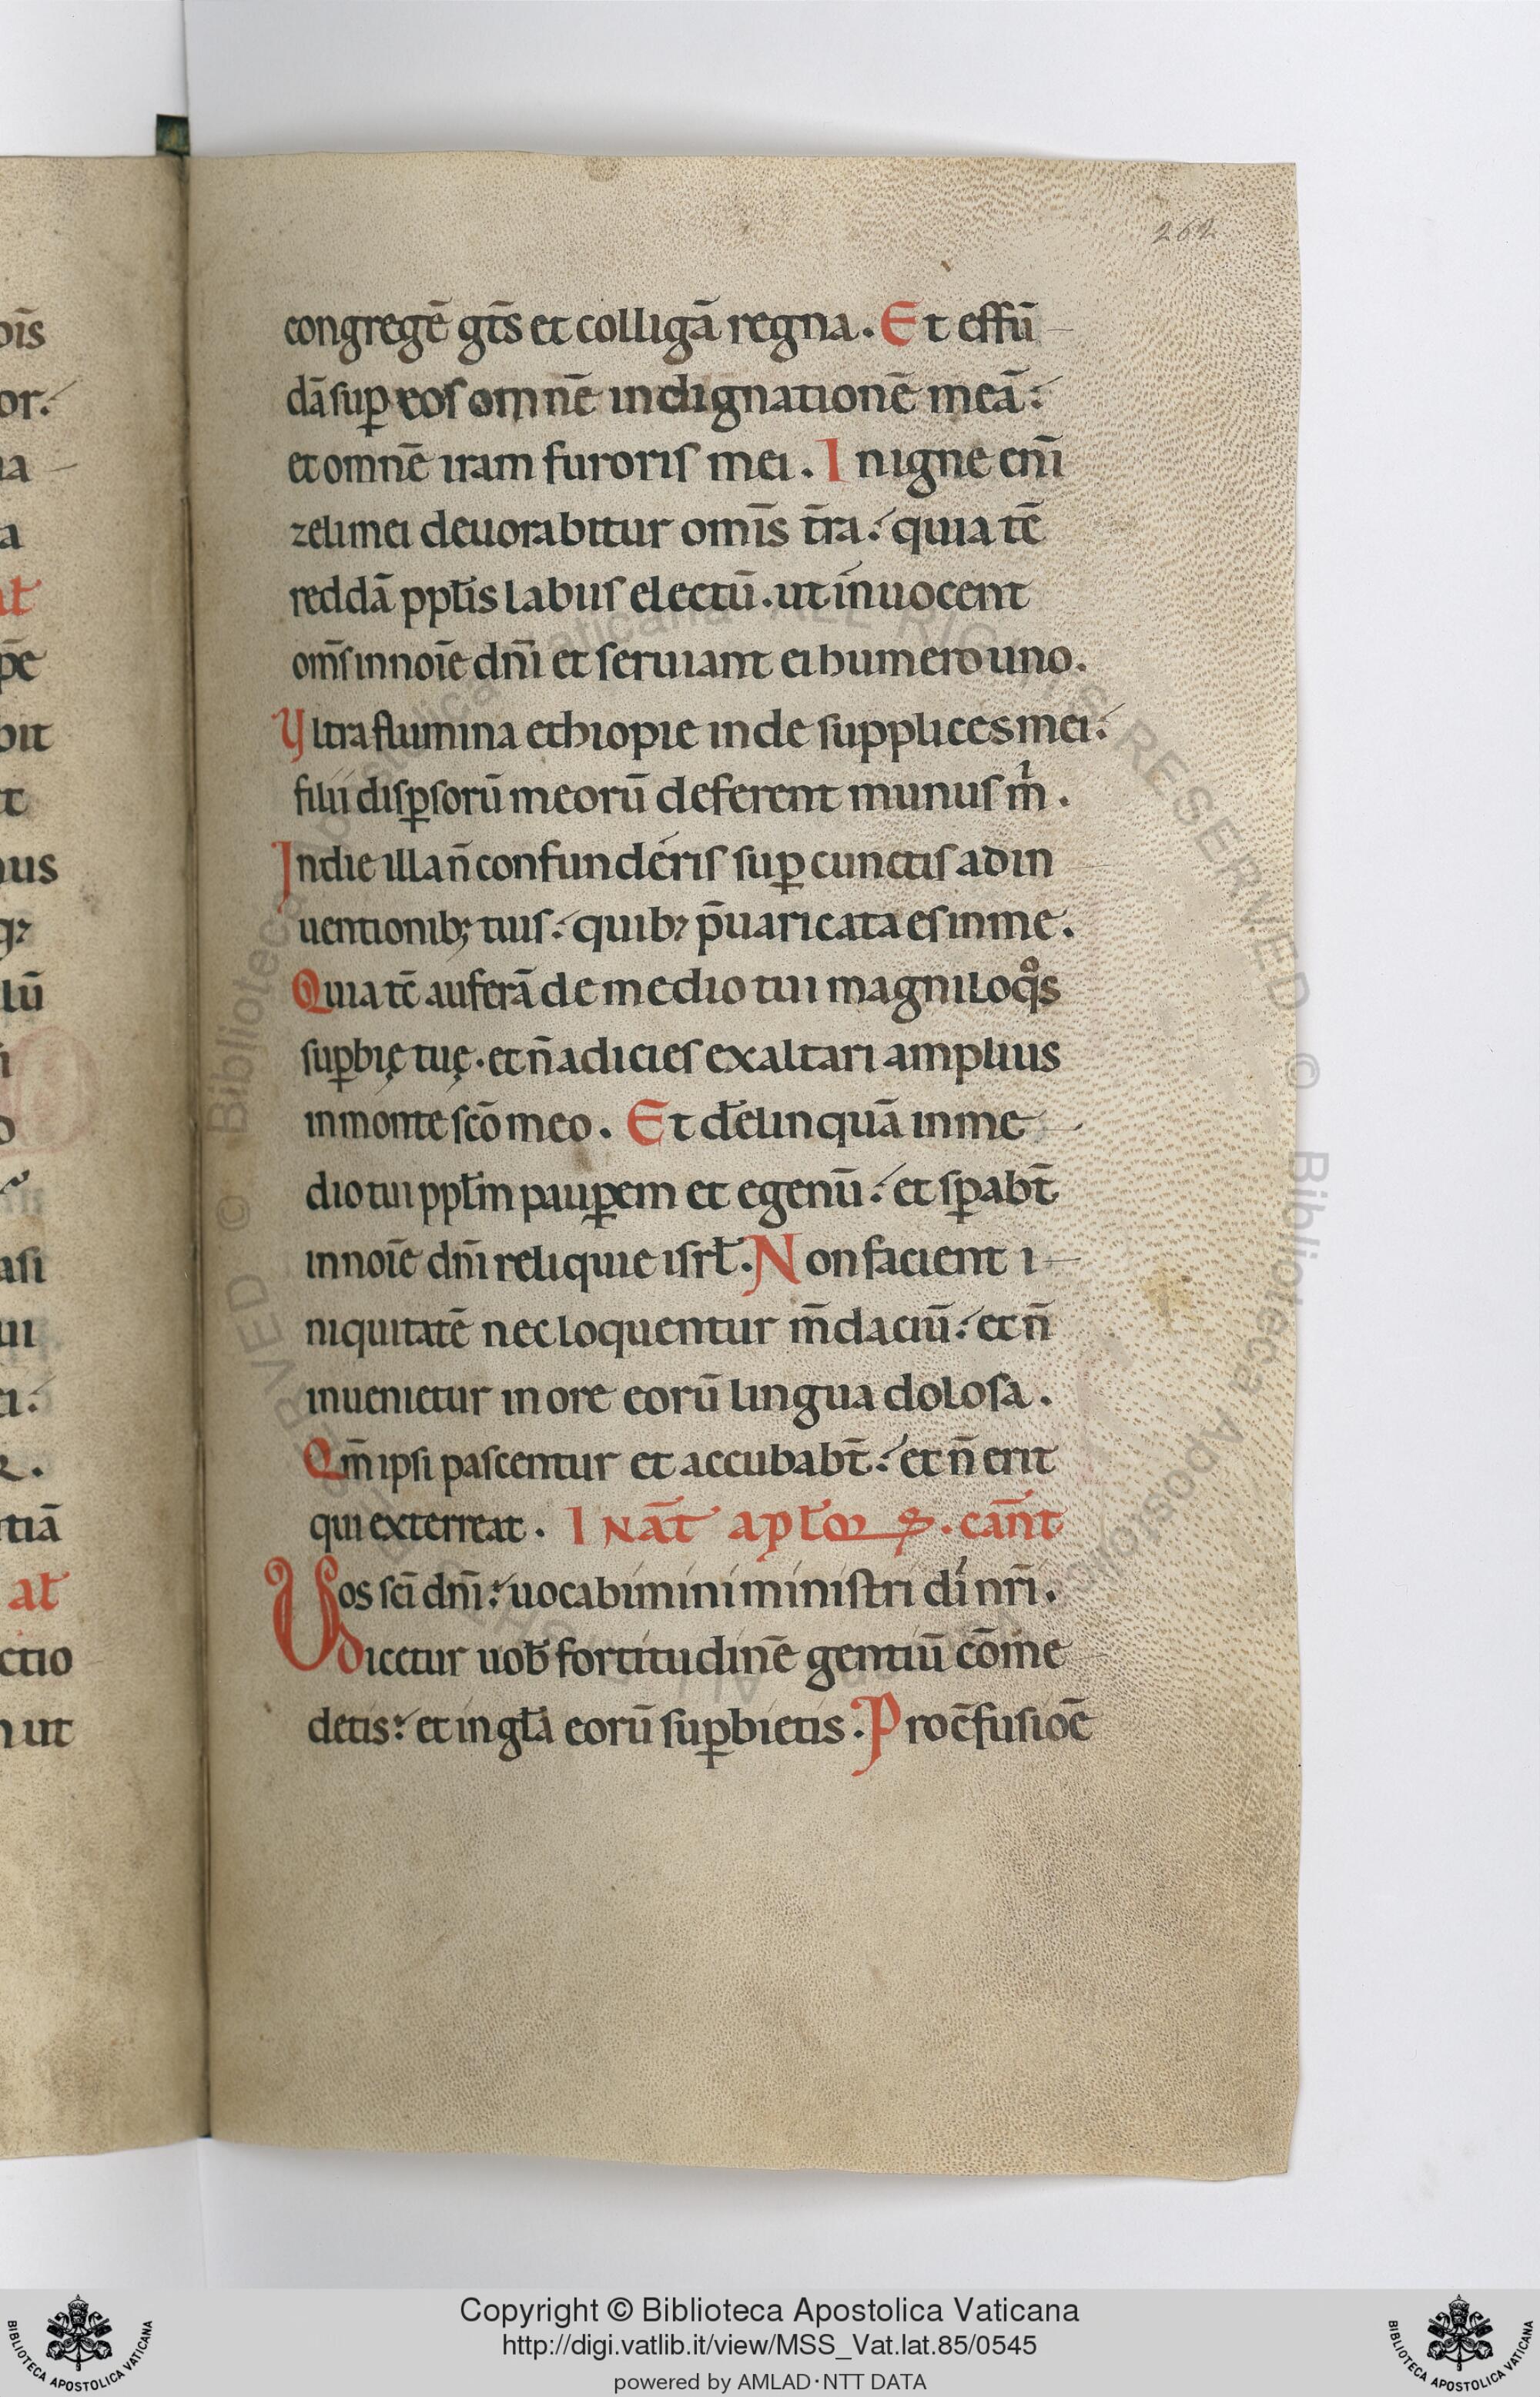 262
congregē gt̄s et colligā regna. Et effū
dā sup̱ eos omnē indignationē meā:
et omnē iram furoris mei. Inigne eni̅
zeli mei deuorabitur omi̅s t̅ra: quia tc̄
reddā ppłis labiis electū. ut inuocent
om̅s in noi̅e dn̅i et seruiant ei humero uno.
Vltra flumina ethiopie inde supplices mei:
filii disp̱sorū meorū deferent munus m̅i.
In die illa n̄ confunderis sup̱ cunctis adin
uentionib; tuis: quib; p̄uaricata es in me.
Quia tc̄ auferā de medio tui magniloqͦs
sup̱bię tuę. et n̄ adicies exaltari amplius
in monte sc̄o meo. Et đelinquā in me
dio tui ppłm paup̱em et egenū: et sp̱abt̄
in noi̅e dn̅i reliquie isrł. Non facient i
niquitatē nec loquentur m̄daciū: et n̄
inuenietur in ore eorū lingua dolosa.
Qm̄ ipsi pascentur et accubabt̄: et n̄ erit
qui exterreat. IN NAT̄ apłoꝝ. cānt
Vos sc̄i dn̅i: uocabimini ministri di̅ nr̅i.
dicetur uob̄ fortitudinē gentiū cōme
detis: et in gła eorū sup̱bietis. Pro c̄fusioē
or.
us
lū
asi
ui
tiā
ał
ctio
ut
Copyright © Biblioteca Apostolica Vaticana
http://digi.vatlib.it/view/MSS_Vat.lat.85/0545
powered by AMLAD·NTT DATA
BIBLIOTECA APOSTOLICA VATICANA
BIBLIOTECA APOSTOLICA VATICANA